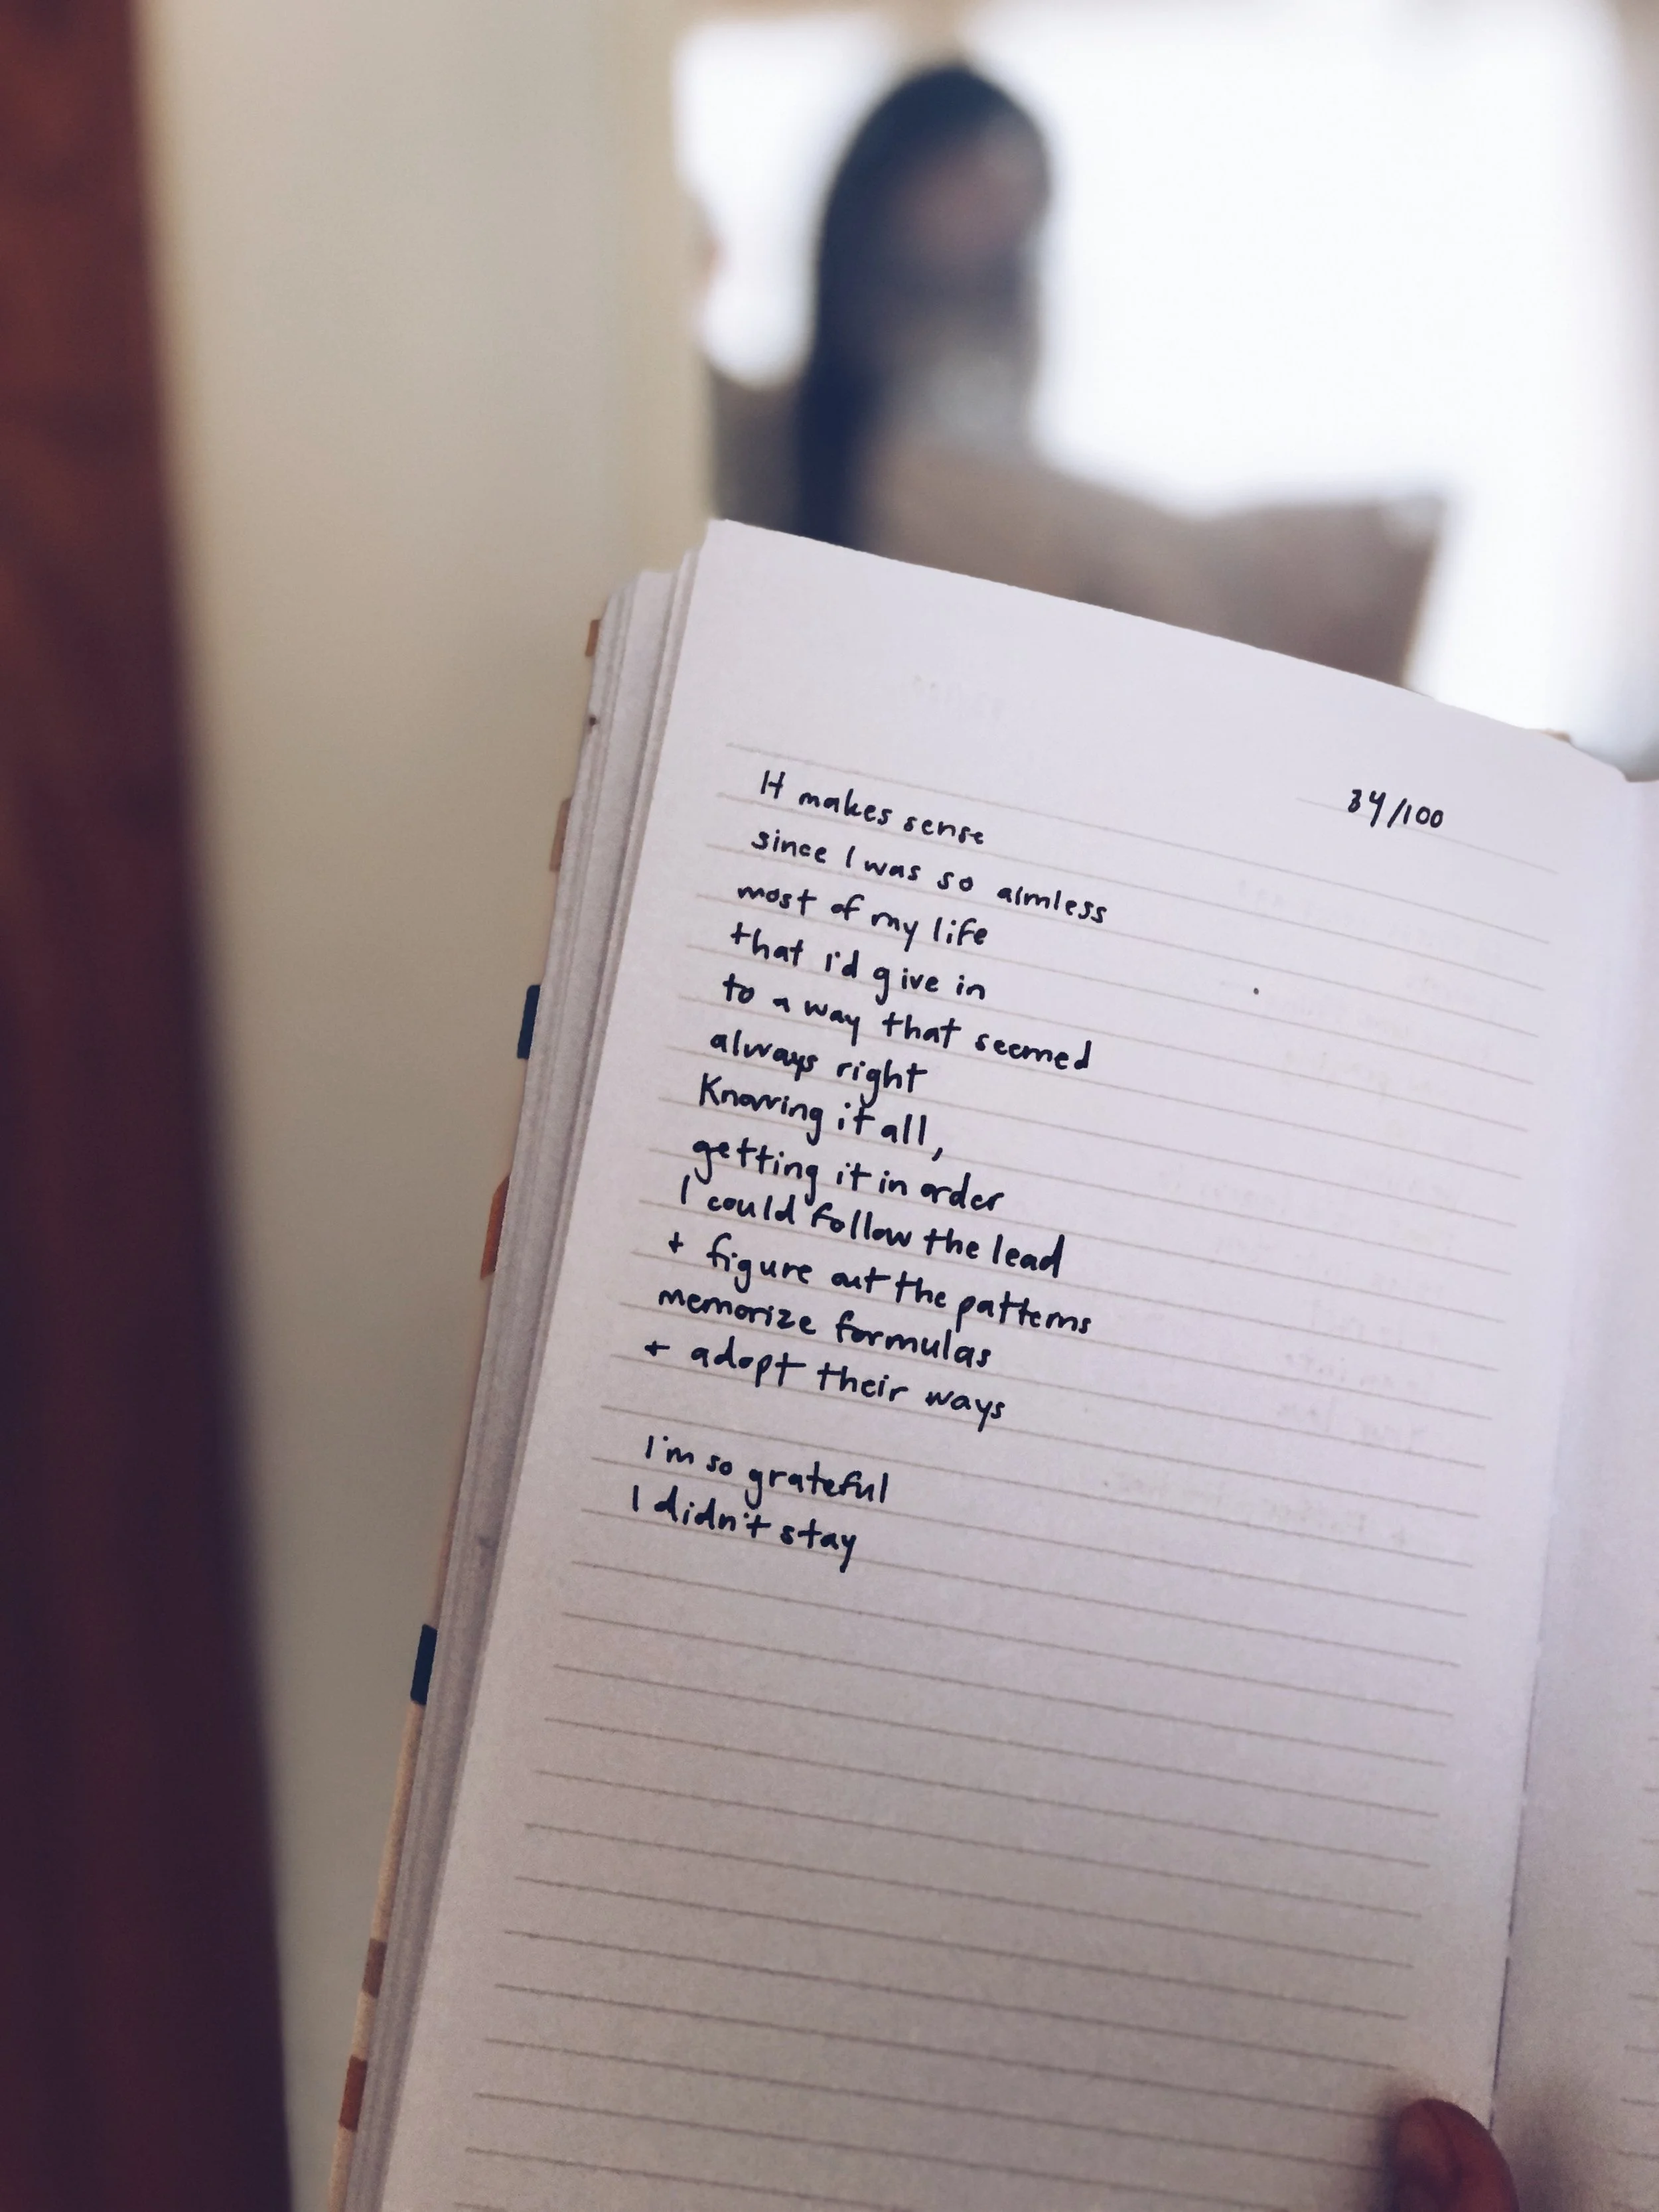 84/100
It makes sense
since I was so aimless
most of my life
that I'd give in
to a way that seemed
always right
Knowing it all,
getting it in order
I could follow the lead
+ figure out the patterns
memorize formulas
+ adopt their ways
I'm so grateful
I didn't stay